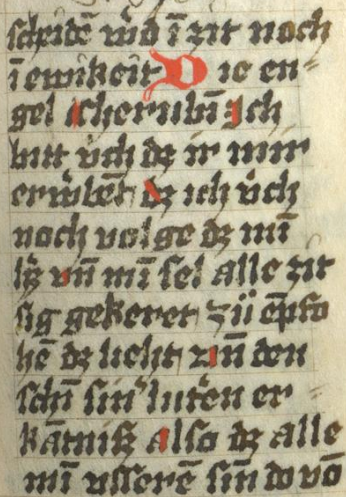 scheidē wˀd ī zit noch
ī ewikeit Die en-
gel cherubī Ich
bitt v́ch dz ir mir
erwˀbēt dz ich v́ch
noch volge dz mī
hˀz vn̄ mī sel alle zit
sig gekeret zü ēpfo
hē dz liecht vn̄ den
schī sinˀ lutˀen er-
kātniß also dz alle
mī vsserē sin do vō